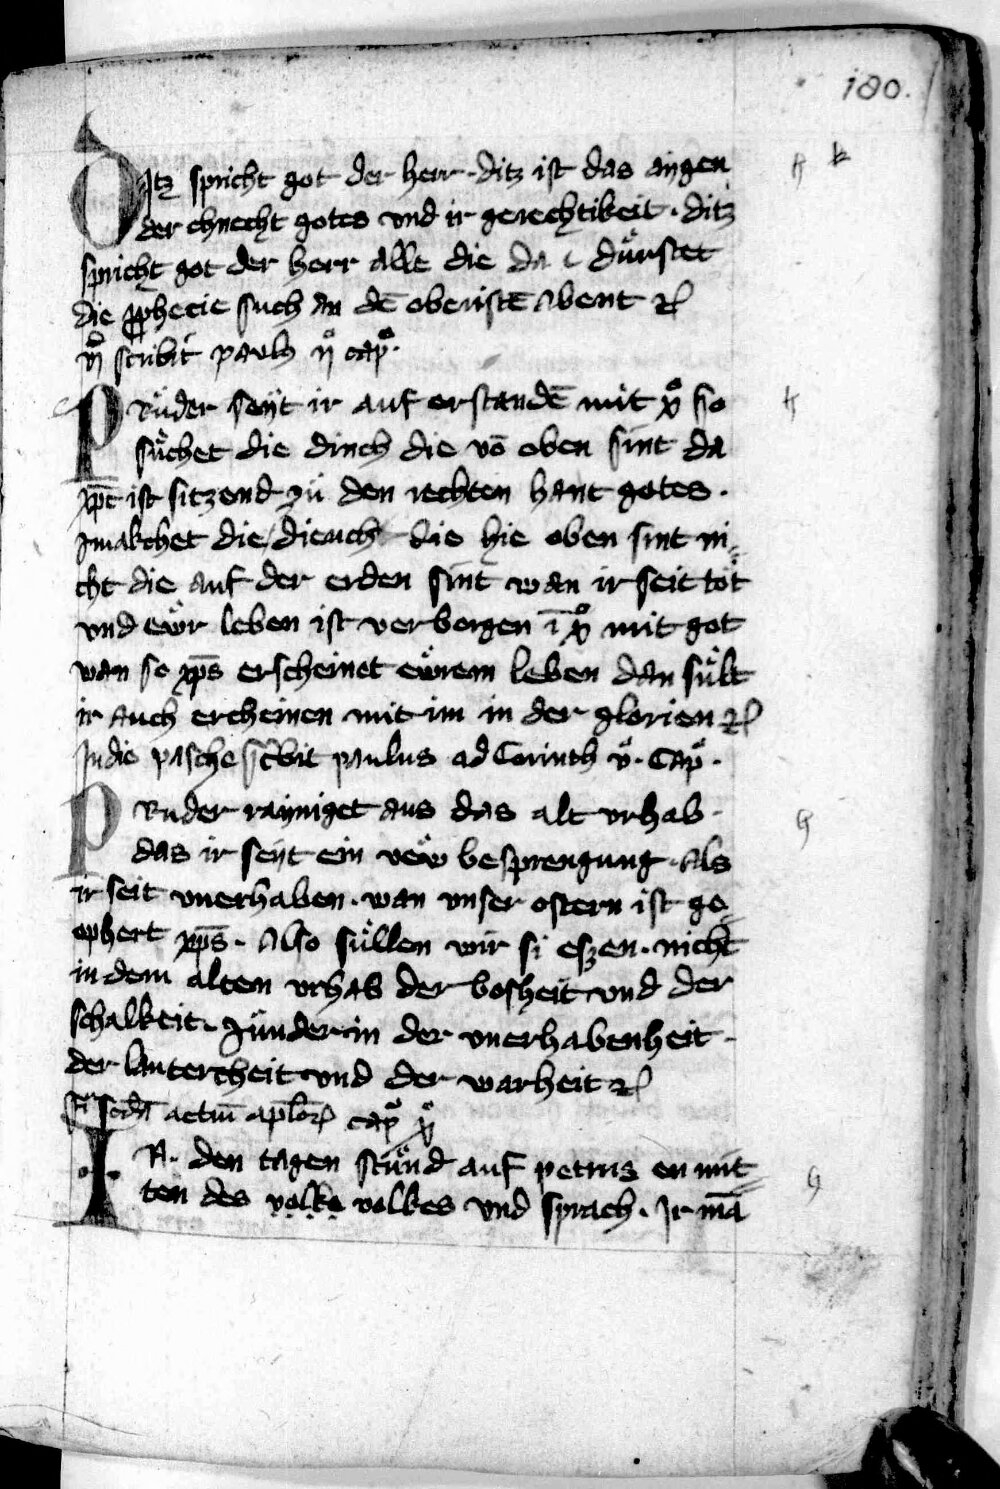 180.
Ditz spricht got der herr. ditz ist das aygen
der chnecht gotes vnd ir gerechtikeit. ditz
spricht got der herr alle die da dürstet
die ꝓphecie such an dē oberistē abent ꝛc
scribit pauls capͦ.
PRůder seyt ir auf erstandē mit xͦ so
sůchet die dinch die vō oben sint da
xpc̄ ist sitzend zů den rechten hant gotes.
smakchet die die hie oben sint ni
cht die auf der erden sint wan ir seit tot
vnd ewr leben ist verborgen ī xͦ mit got
wan so xp̄s erscheinet ewrem leben dan sült
ir auch ercheinen mit im in der glorien ꝛc
In die pasche sc̄bit paulus ad Corinth v. Capͦ.
PRuder rayniget aus das alt vrhab.
das ir seyt ein new besprengung. Als
ir seit vnerhaben. wan vnser ostern ist ge
ophert xp̄s. Also süllen wir si eszen. nicht
in dem alten vrhab der bosheit vnd der
schalkeit. sünder in der vnerhabenheit.
der lautercheit vnd der warheit ꝛc
actuū apl̄oꝝ capͦ xͦ
IN. den tagen stůnd auf petrus en mit
ten des volks volkes vnd sprach. Ir mā